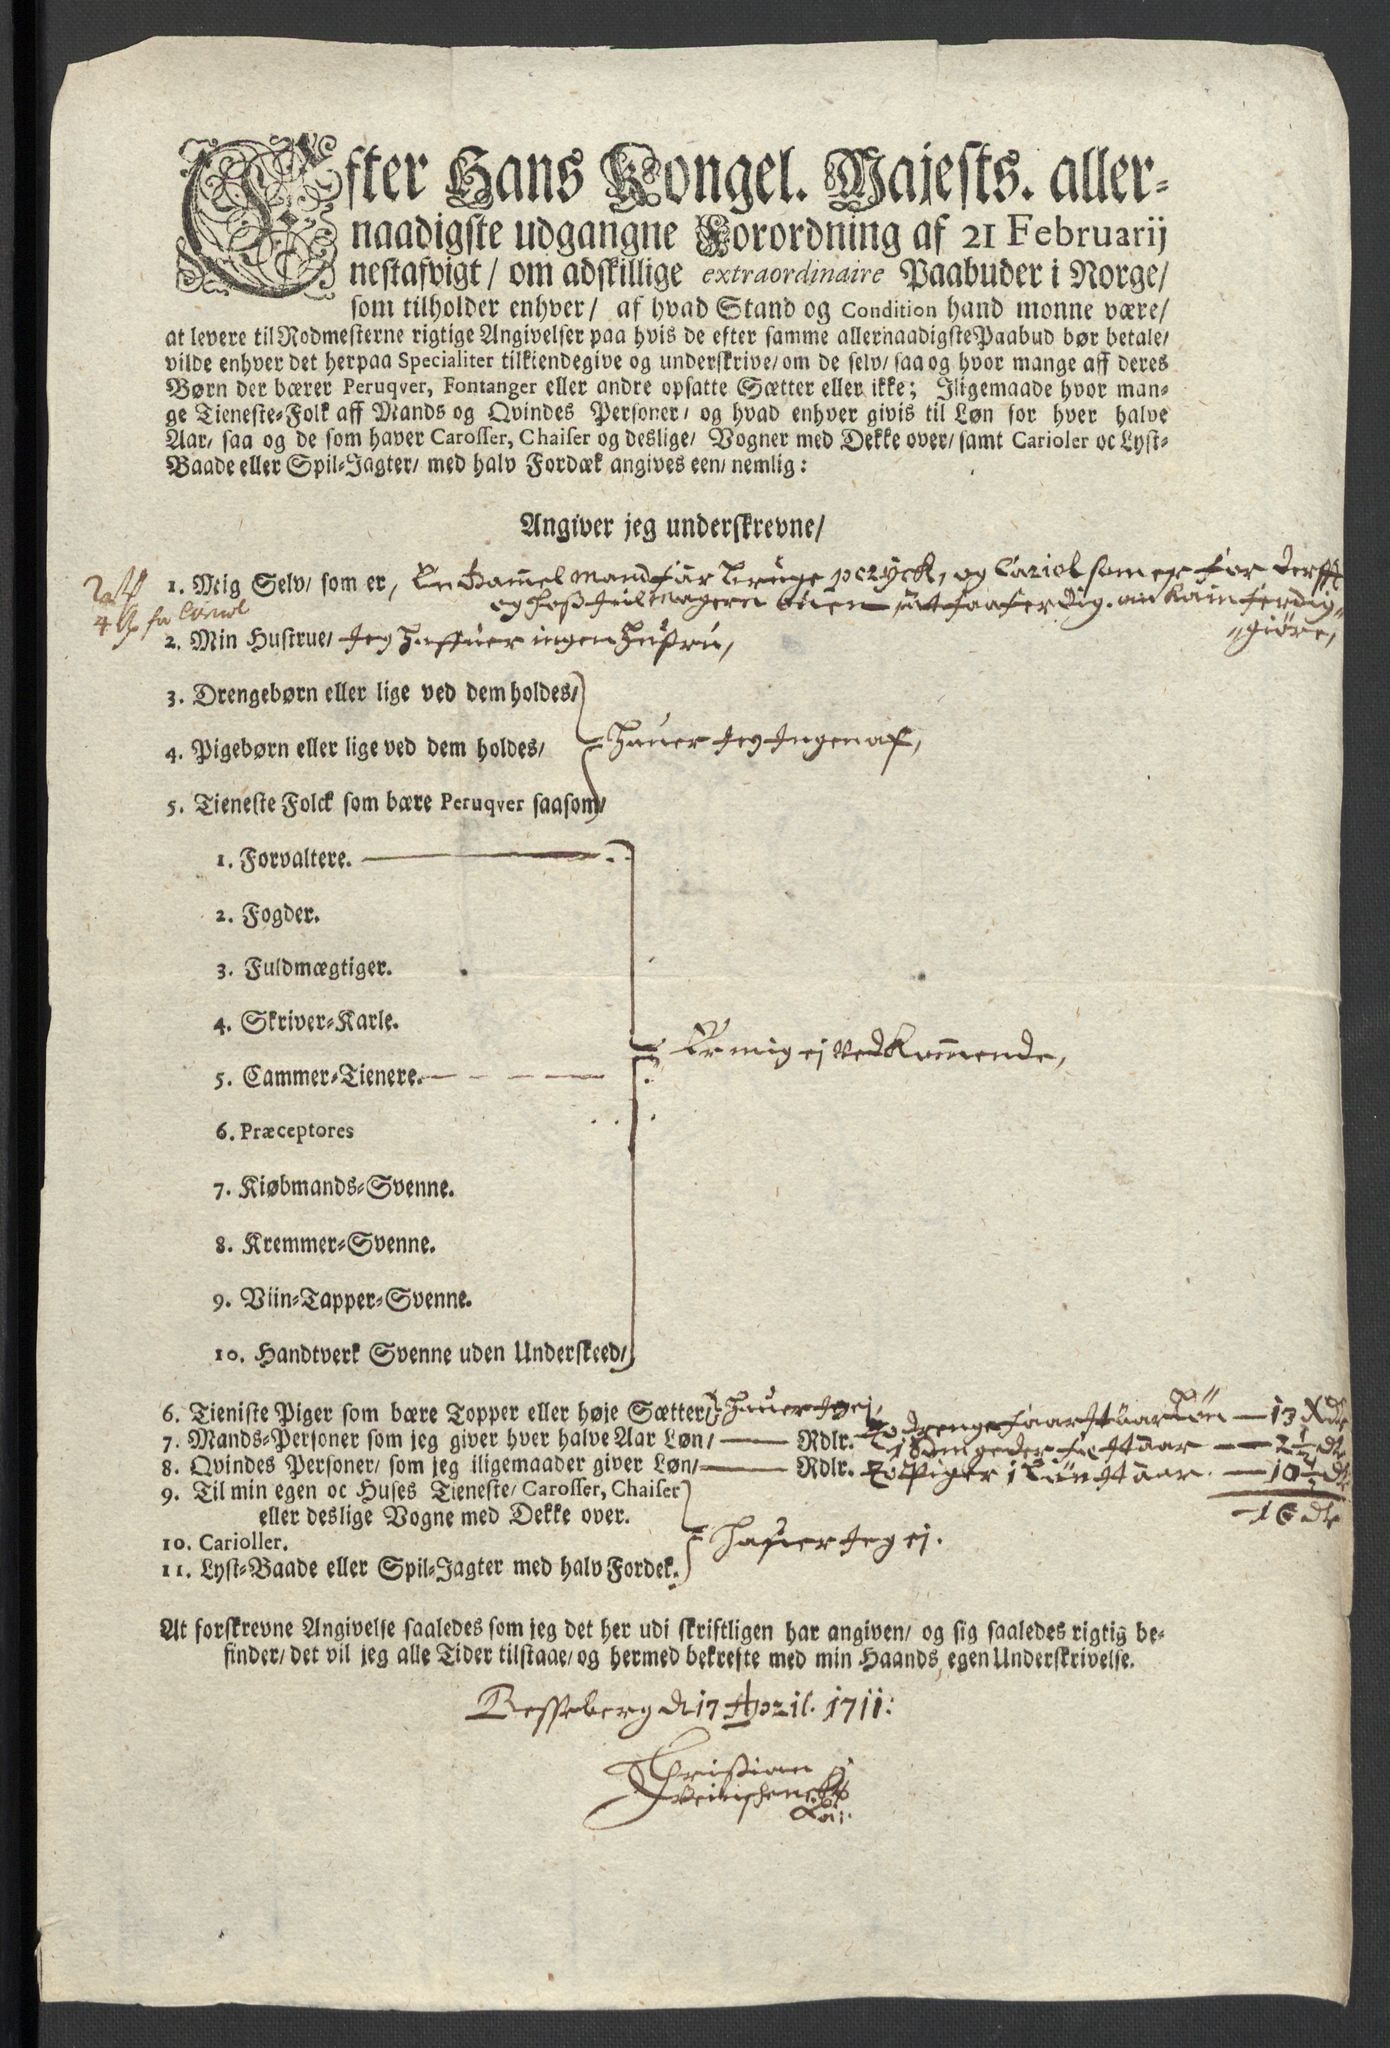 Efter Hans Kongel. Majests. aller-
naadigste udgangne Forordning af 21 Februarij
nestafvigt/ om adskillige extraordinaire Paabuder i Norge/
som tilholder enhver/ af hvad Stand og Condition hand monne være/
at levere til Rodmesterne rigtige Angivelser paa hvis de efter samme allernaadigste Paabud bør betale/
vilde enhver det herpaa Specialiter tilkiendegive og underskrive/ om de selv/ saa og hvor mange aff deres
Børn der bærer Peruqver, Fontanger eller andre opsatte Sætter eller ikke; Iligemaade hvor man-
ge Tieneste-Folk aff Mands og Qvindes Personer/ og hvad enhver givis til Løn for hver halve
Aar/ saa og de som haver Carosser, Chaiser og deslige/ Vogner med Dekke over/ samt Carioler oc Lyst-
Baade eller Spil-Jagter/ med halv Fordæk angives een/ nemlig:
Angiver jeg underskrevne/
1. Meig Selv/ som er, En Gammel mand får bruge peryck, og Cariol som er for
og hoß
4 for Cariol
giöre,
2. Min Hustrue/ Jeg Haffuer ingen Hustru,
3. Drengebørn eller lige ved dem holdes/
Hauer Jeg Ingen af,
4. Pigebørn eller lige ved dem holdes/
5. Tieneste Folck som bære Peruqver saasom/
1. Forvaltere.
2. Fogder.
3. Fuldmægtiger.
4. Skriver-Karle.
Er mig ej Vedkommende,
5. Cammer-Tienere.
6. Præceptores
7. Kiøbmands-Svenne.
8. Kremmer-Svenne.
9. Viin-Tapper-Svenne.
10. Handtverk Svenne uden Underskeed/
6. Tieniste Piger som bære Topper eller høje Sætter/ Hauer Jeg ej,
7. Mands-Personer som jeg giver hver halve Aar Løn/ — Rdlr. To drenge faar Løn — 13
8. Qvindes Personer/ som jeg iligemaader giver Løn/ — Rdlr. To Piger i Løn — 10 1/2
9. Til min egen oc Huses Tieneste/ Carosser, Chaiser
eller deslige Vogne med Dekke over.
10. Carioller.
hafuer Jeg ej.
11. Lyst-Baade eller Spil-Jagter med halv Fordek.
At forskrevne Angivelse saaledes som jeg det her udi skriftligen har angiven/ og sig saaledes rigtig be-
finder/ det vil jeg alle Tider tilstaae/ og hermed bekrefte med min Haands egen Underskrivelse.
Resseberg d 17 April. 1711:
Christian